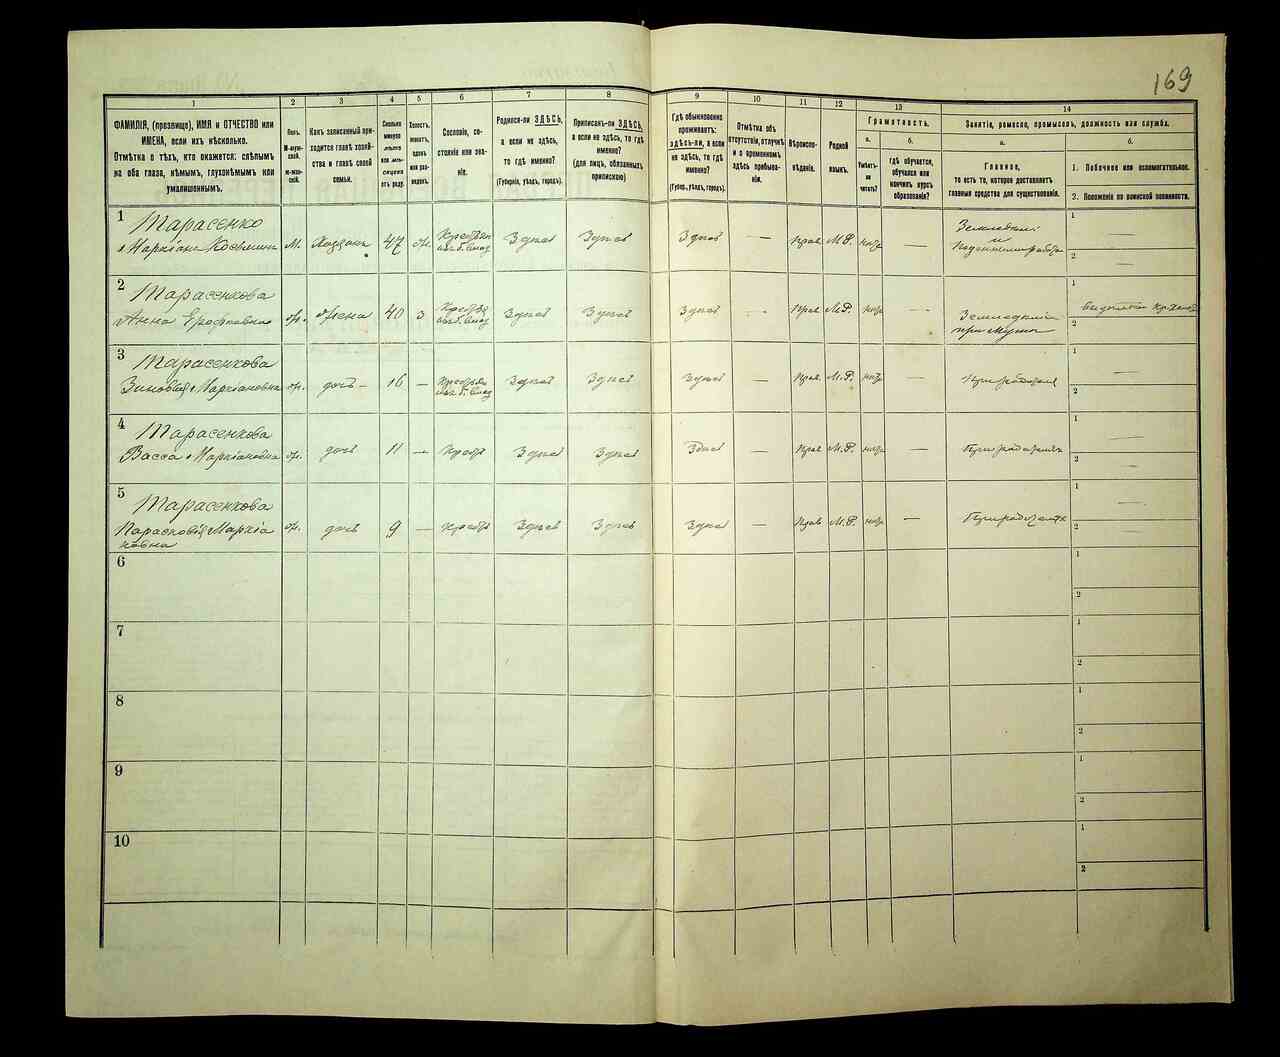 169
1
2
3
4
5
6
7
8
9
10
11
12
13
14
ФАМИЛІЯ, (прозвище), ИМЯ и ОТЧЕСТВО или
ИМЕНА, если ихъ нѣсколько.
Отмѣтка о тѣхъ, кто окажется: слѣпымъ
на оба глаза, нѣмымъ, глухонѣмымъ или
умалишоннымъ.
Полъ.
М-муж-
ской.
Ж-жен-
скій.
Какъ записанный при-
ходится главѣ хозяй-
ства и главѣ своей
семьи.
Сколько
минуло
лѣтъ
или мѣ-
сяцевъ
отъ роду.
Холостъ,
женатъ,
вдовъ
или раз-
веденъ.
Сословіе, со-
стояніе или зва-
ніе.
Родился-ли ЗДѢСЬ,
а если не здѣсь,
то гдѣ именно?
(Губернія, уѣздъ, городъ).
Приписанъ-ли ЗДѢСЬ,
а если не здѣсь, то гдѣ
именно?
(для лицъ, обязанныхъ
припискою)
Гдѣ обыкновенно
проживаетъ:
здѣсь-ли, а если
не здѣсь, то гдѣ
именно?
(Губерн., уѣздъ, городъ).
Отмѣтка объ
отсутствіи, отлучкѣ
и о временномъ
здѣсь пребыва-
ніи.
Вѣроиспо-
вѣданіе.
Родной
языкъ.
Грамотность.
а.
Умѣетъ-
ли
читать?
б.
Гдѣ обучается,
обучался или
кончилъ курсъ
образованія?
Занятіе, ремесло, промыселъ, должность или служба.
а.
Главное,
то есть то, которое доставляетъ
главныя средства для существованія.
б.
1. Побочное или вспомогательное.
2. Положеніе по воинской повинности.
1
Тарасенко
Маркіанъ
М.
Хозяинъ
47
Здѣсь
Здѣсь
Здѣсь
—
Прав
М.Р.
—
и
1
—
2
—
2
Тарасенкова
Анна Ерофѣевна
ж.
Жена
40
з
Здѣсь
Здѣсь
Здѣсь
—
Прав
М.Р.
—
при мужѣ
1
2
3
Тарасенкова
Зиновія Маркіановна
ж.
дочь
16
—
Здѣсь
Здѣсь
Здѣсь
—
Прав.
М.Р.
—
1
—
2
—
4
Тарасенкова
Васса Маркіановна
ж.
дочь
11
—
Крестя
Здѣсь
Здѣсь
Здѣсь
—
Прав
М.Р.
—
1
—
2
—
5
Тарасенкова
Парасковія Маркіа
новна
ж.
дочь
9
—
Крестя
Здѣсь
Здѣсь
Здѣсь
—
Прав
М.Р.
—
1
—
2
—
6
1
2
7
1
2
8
1
2
9
1
2
10
1
2